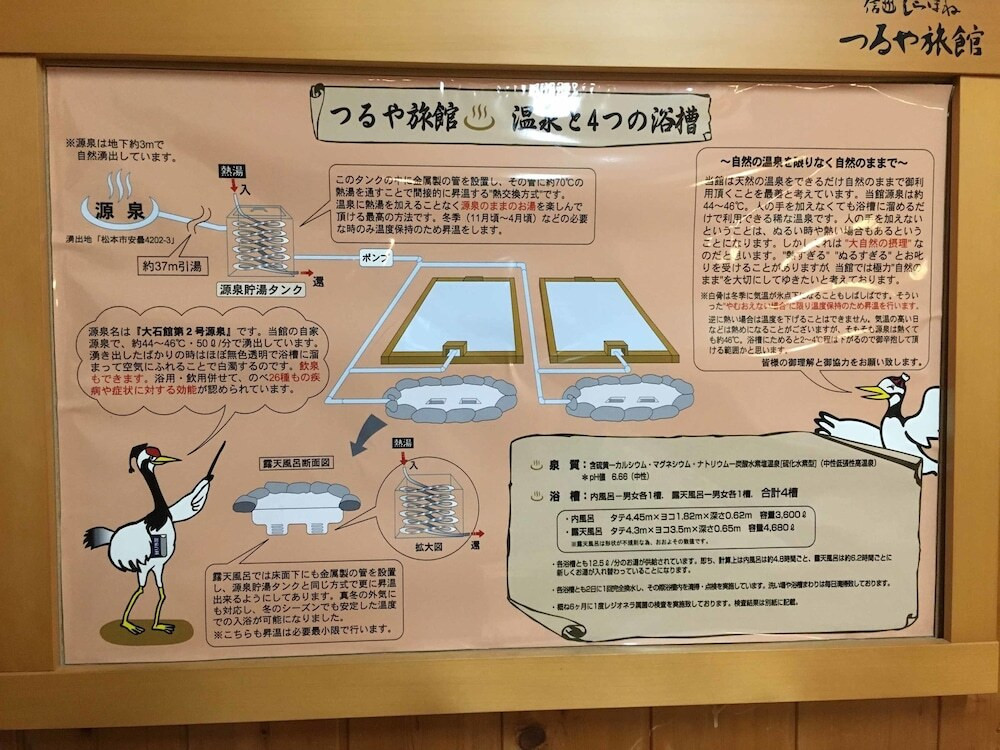 信州しらほね
つるや旅館
つるや旅館 ♨ 温泉と4つの浴槽
※源泉は地下約3mで
自然湧出しています。
源泉
湧出地「松本市安曇4202-3」
約37m引湯
熱湯
入
還
源泉貯湯タンク
このタンクの中に金属製の管を設置し、その管に約70℃の
熱湯を通すことで間接的に昇温する"熱交換方式"です。
温泉に熱湯を加えることなく源泉のままのお湯を楽しんで
頂ける最高の方法です。冬季（11月頃〜4月頃）などの必要
な時のみ温度保持のため昇温をします。
ポンプ
〜自然の温泉を限りなく自然のままで〜
当館は天然の温泉をできるだけ自然のままで御利
用頂くことを最善と考えています。当館源泉は約
44〜46℃。人の手を加えなくても浴槽に溜めるだ
けで利用できる稀な温泉です。人の手を加えない
ということは、ぬるい時や熱い場合もあるという
ことになります。しかしそれは"大自然の摂理"な
のだと思います。"熱すぎる" "ぬるすぎる" とお叱
りを受けることがありますが、当館では極力"自然の
まま"を大切にしてゆきたいと考えております。
※白骨は冬季に気温が氷点下になることもしばしばです。そうい
った"やむおえない場合"に限り温度保持のため昇温を行います。
逆に熱い場合は温度を下げることはできません。気温の高い日
などは熱めになることがございますが、そもそも源泉は熱くて
も約46℃。浴槽にためると2〜4℃程は下がるので御辛抱して頂
ける範囲かと思います。
皆様の御理解と御協力をお願い致します。
源泉名は『大石館第２号源泉』です。当館の自家
源泉で、約44〜46℃・50ℓ/分で湧出しています。
湧き出したばかりの時はほぼ無色透明で浴槽に溜
まって空気にふれることで白濁するのです。飲泉
もできます。浴用・飲用併せて、のべ26種もの疾
病や症状に対する効能が認められています。
露天風呂断面図
熱湯
入
還
拡大図
露天風呂では床面下にも金属製の管を設置
し、源泉貯湯タンクと同じ方式で更に昇温
出来るようにしてあります。真冬の外気に
も対応し、冬のシーズンでも安定した温度
での入浴が可能になりました。
※こちらも昇温は必要最小限で行います。
♨ 泉 質：含硫黄ーカルシウム・マグネシウム・ナトリウムー炭酸水素塩温泉[硫化水素型]（中性低張性高温泉）
＊pH値 6.66（中性）
♨ 浴 槽：内風呂－男女各1槽、露天風呂－男女各1槽、合計4槽
・内風呂 タテ4.45m×ヨコ1.82m×深さ0.62m 容量3,600ℓ
・露天風呂 タテ4.3m×ヨコ3.5m×深さ0.65m 容量4,680ℓ
※露天風呂は形状が不規則な為、おおよその数値です。
・各浴槽とも12.5ℓ/分のお湯が供給されています。即ち、計算上は内風呂は約4.8時間ごと、露天風呂は約6.2時間ごとに
新しくお湯が入れ替わっていることになります。
・各浴槽とも2日に1回完全換水し、その際浴槽内を清掃・点検を実施しています。洗い場や浴槽まわりは毎日清掃致しております。
・概ね6ヶ月に1度レジオネラ属菌の検査を実施致しております。検査結果は別紙に記載。